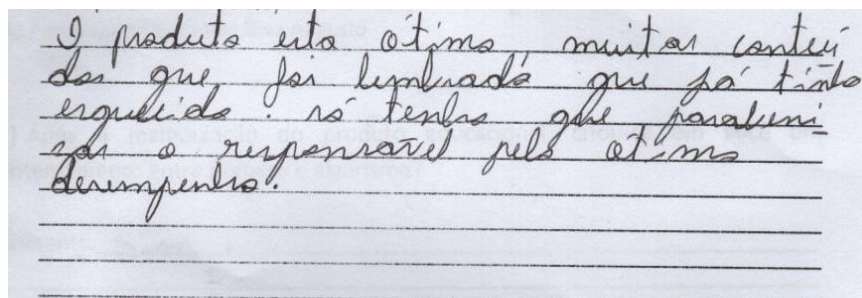 O produto esta otimo, muitos conteú
dos que foi lembrado que já tinha
esquecido. só tenho que parabeni-
zar o responsável pelo otimo
desempenho.